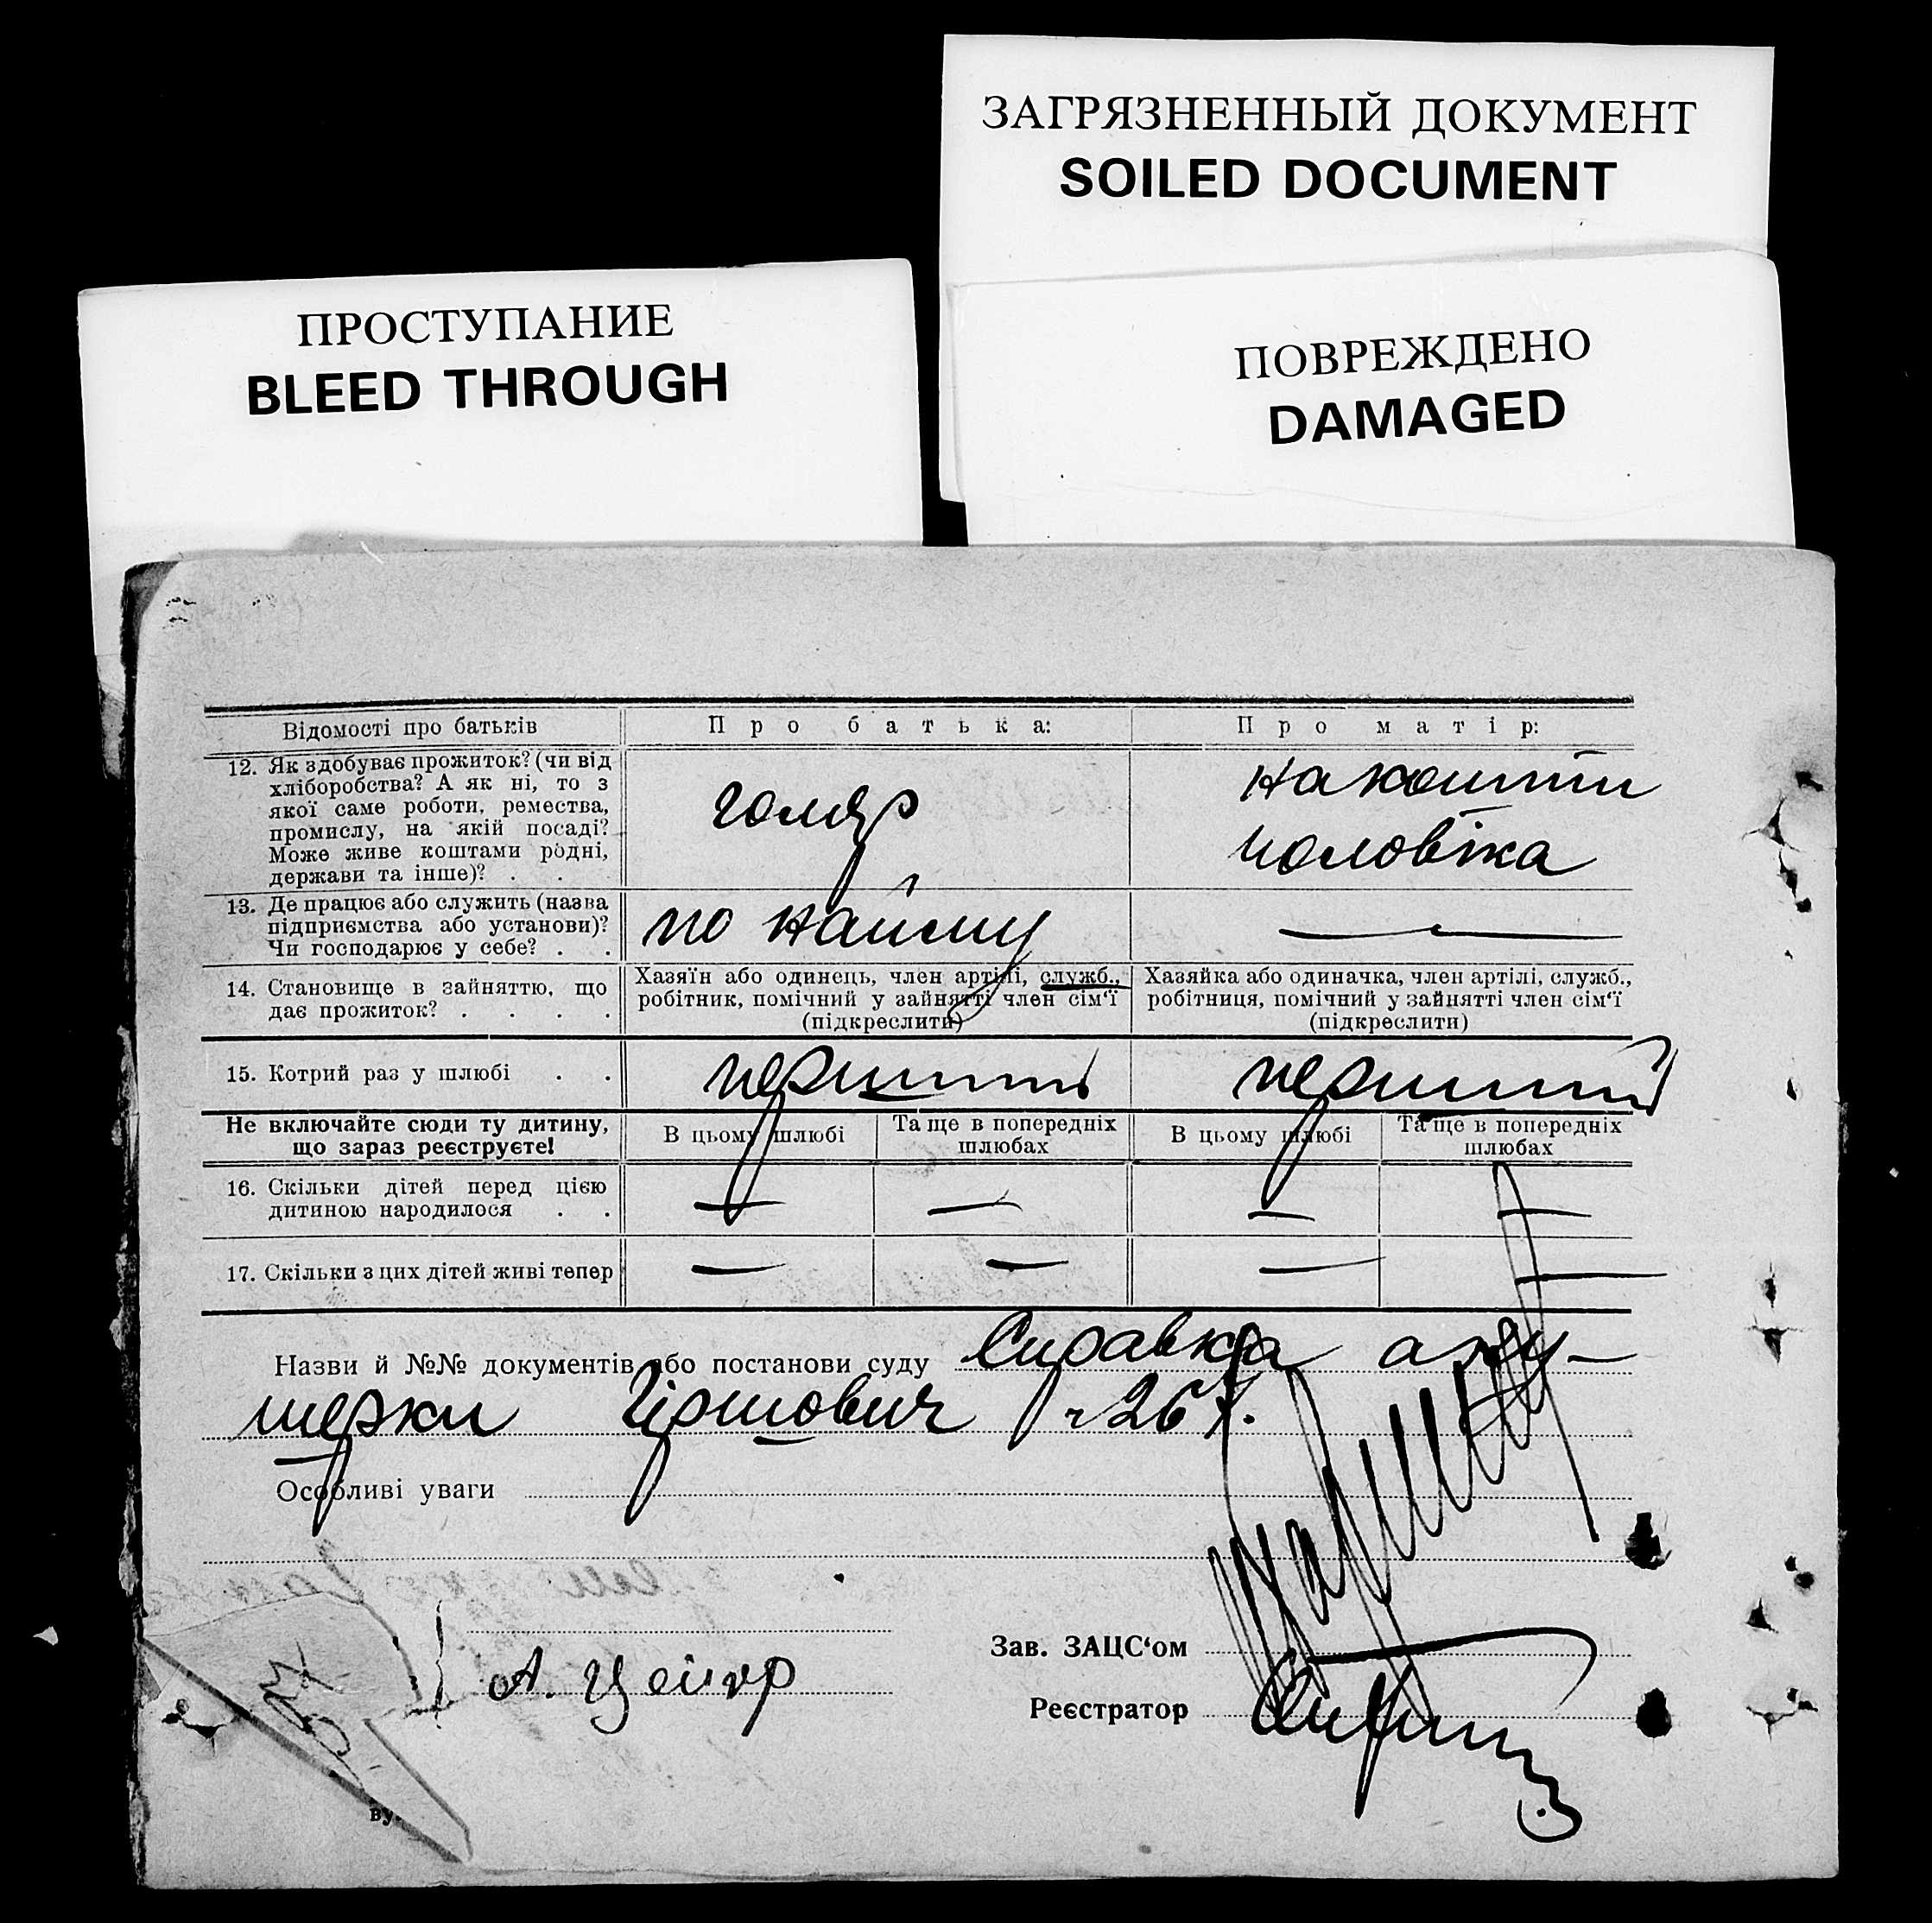 ЗАГРЯЗНЕННЫЙ ДОКУМЕНТ
SOILED DOCUMENT
ПРОСТУПАНИЕ
BLEED THROUGH
ПОВРЕЖДЕНО
DAMAGED
Відомості про батьків
Про батька:
Про матір:
12. Як здобуває прожиток? (чи від
хліборобства? А як ні, то з
якої саме роботи, ремества,
промислу, на якій посаді?
Може живе коштами родні,
держави та інше)? . . .
голяр
на кошти
чоловіка
13. Де працює або служить (назва
підприємства або установи)?
Чи господарює у себе? . .
по найму
—
14. Становище в зайняттю, що
дає прожиток? . . . .
Хазяїн або одинець, член артілі, служб.,
робітник, помічний у зайнятті член сім'ї
(підкреслити)
Хазяйка або одиначка, член артілі, служб.,
робітниця, помічний у зайнятті член сім'ї
(підкреслити)
15. Котрий раз у шлюбі . .
перший
перший
Не включайте сюди ту дитину,
що зараз реєструєте!
В цьому шлюбі
Та ще в попередніх
шлюбах
В цьому шлюбі
Та ще в попередніх
шлюбах
16. Скільки дітей перед цією
дитиною народилося . .
— — — —
17. Скільки з цих дітей живі тепер
— — — —
Назви й №№ документів або постанови суду Справка аку-
шерки Гіршович
Особливі уваги
Зав. ЗАЦС'ом
А.
Реєстратор
ву